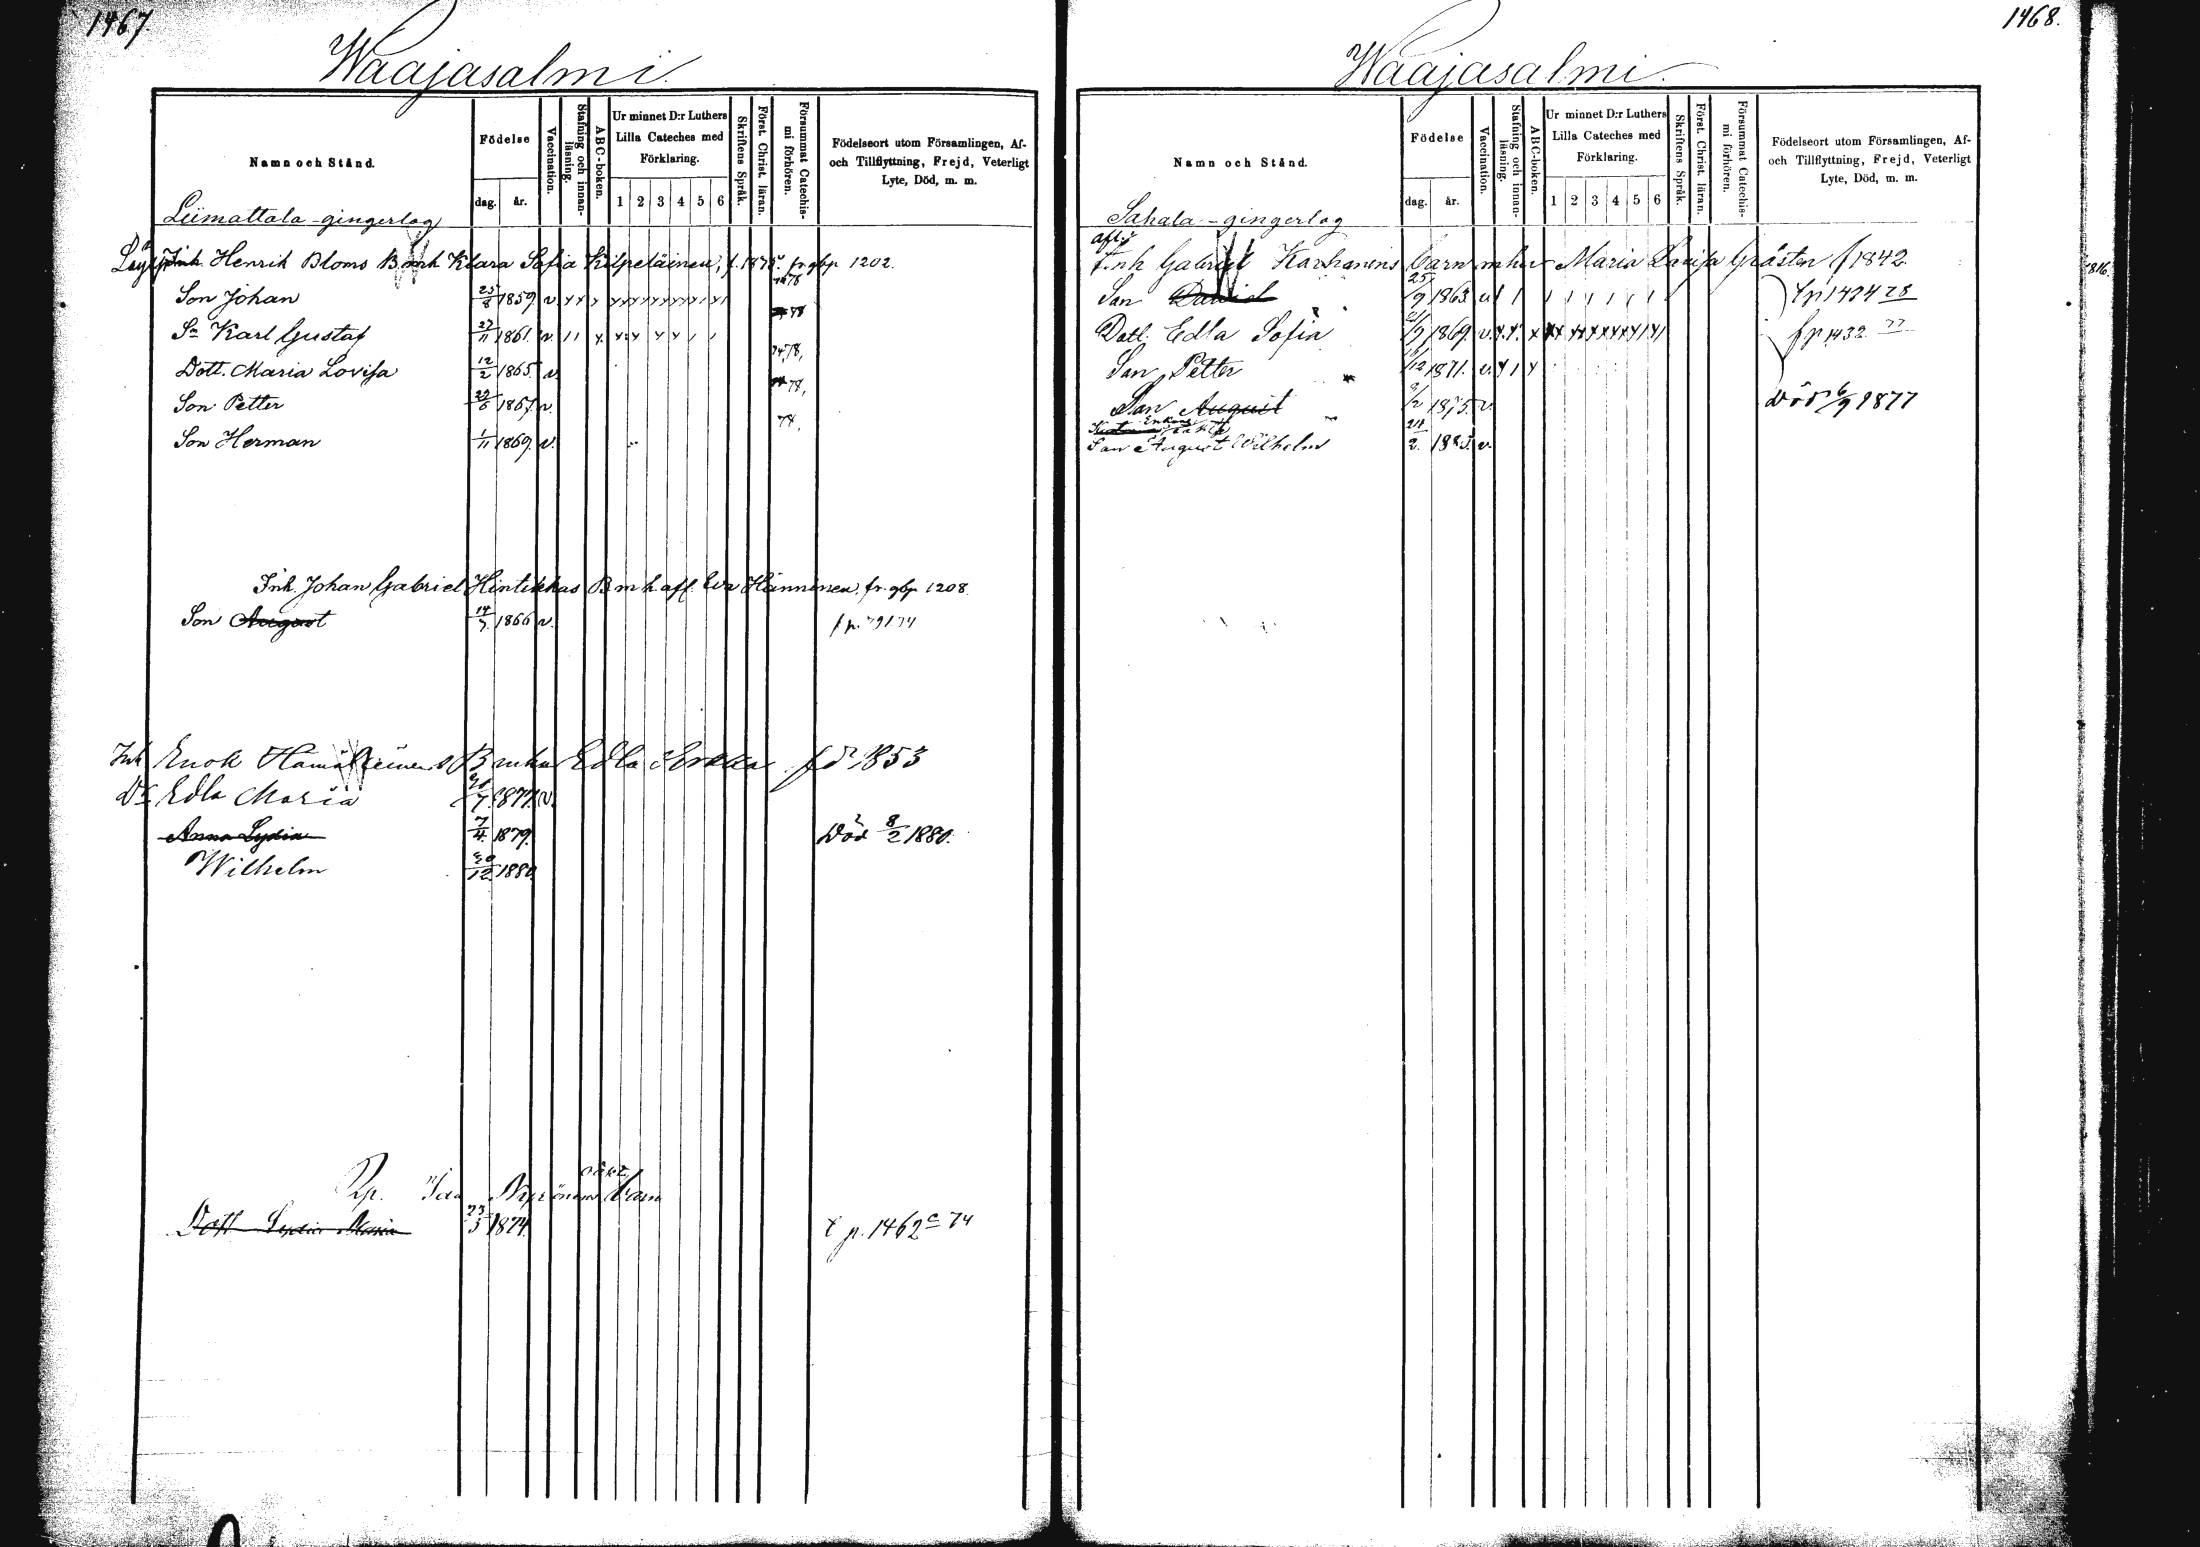 1467.
Waajasalmi.
Namn och Stånd.
Födelse
dag. år.
Vaccination.
Stafning och innanläsning.
ABC-boken.
Ur minnet D:r Luthers Lilla Cateches med Förklaring.
1 2 3 4 5 6
Skriftens Språk.
Först. Christ. läran.
Försummat Catechismi förhören.
Födelseort utom Församlingen, Af- och Tillflyttning, Frejd, Veterligt Lyte, Död, m. m.
Liimattala-gingerlag
Inh. Henrik Bloms B mh Klara Sofia Kilpeläinen, fr. gbp 1202.
Son Johan 25/8 1859 v.
Sn Karl Gustaf 27/11 1861. v. 78
Dott. Maria Lovisa 12/2 1865 v. 78,
Son Petter 29/6 1867. v. 78,
Son Herman 1/11 1869. v. 78,
Inh. Johan Gabriel Hintikkas B mh aff. Eva Hänninen. fr. gbp 1208.
Son August 14/7 1866 v.
Inh Enok Hämäläinens B mhu Edla fd 1853
Dr Edla Maria /7 1877. v.
Anna Lydia 7/4 1879. Död 8/2 1880.
Wilhelm 30/12 1880.
oäkt.
Pig. Barn
Dott Lydia Maria 23/3 1874. t p. 1462 c 74
1468.
Waajasalmi.
Namn och Stånd.
Födelse
dag. år.
Vaccination.
Stafning och innanläsning.
ABC-boken.
Ur minnet D:r Luthers Lilla Cateches med Förklaring.
1 2 3 4 5 6
Skriftens Språk.
Först. Christ. läran.
Försummat Catechismi förhören.
Födelseort utom Församlingen, Af- och Tillflyttning, Frejd, Veterligt Lyte, Död, m. m.
Sahala-gingerlag
afl.
Inh Gabriel Karhanens barn mhu Maria Lovisa Gråsten f 1842.
Son David 25/9 1863. v. t p 1474 78
Dott. Edla Sofia /9 1869. v. fp 1432 77
Son Petter /12 1871. v.
Son August /2 1875. v. Död 6/9 1877
Enkans oäkta
Son August Wilhelm 24/2. v.
1816.